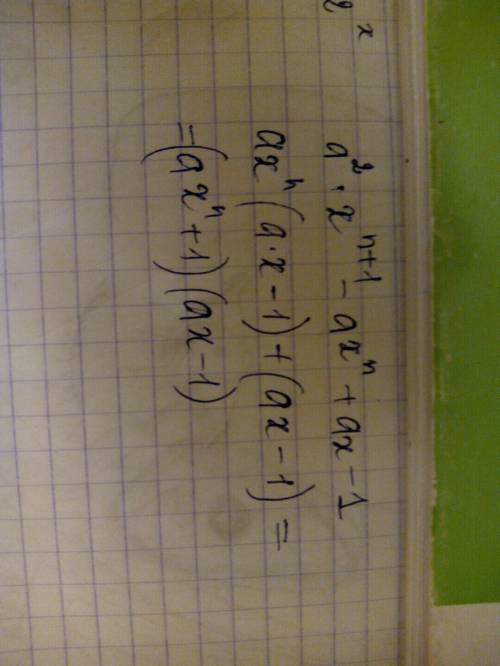 2 x
a² · xⁿ⁺¹ − axⁿ + ax − 1
axⁿ(a·x − 1) + (ax − 1) =
=(axⁿ + 1)(ax − 1)